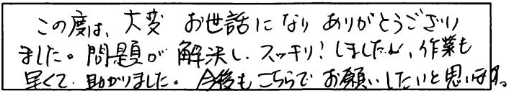 この度は、大変 お世話になり ありがとうござい
ました。問題が 解決し、スッキリ!しましたし、作業も
早くて 助かりました。 今後もこちらで お願いしたいと思います。